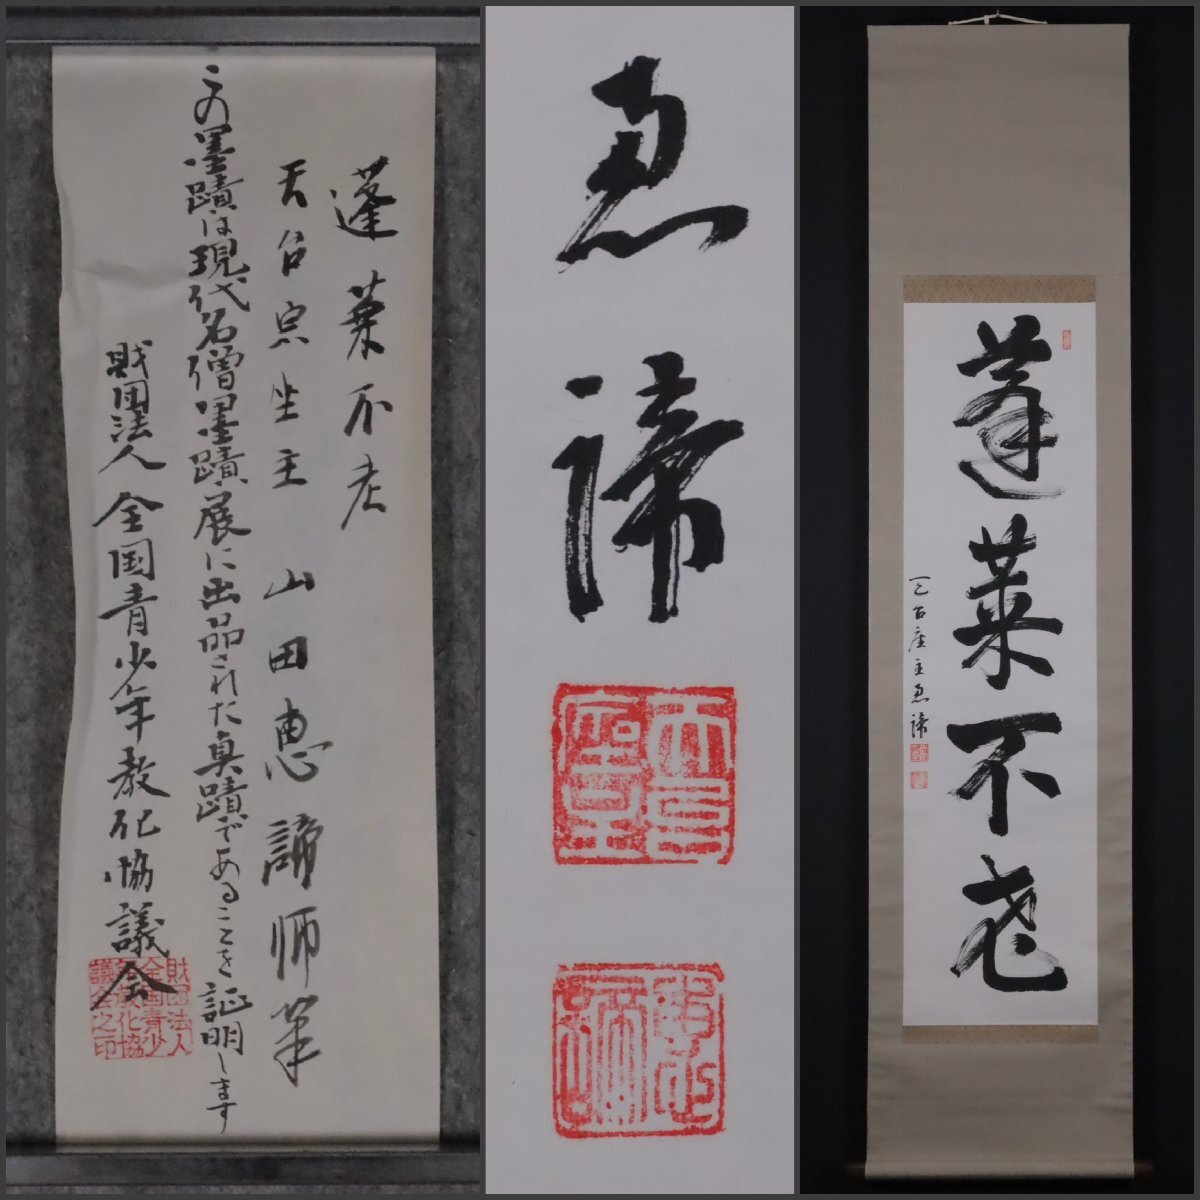 蓬莱不老
天台宗座主 山田恵諦師筆
この墨蹟は現代名僧墨蹟展に出品された真蹟であることを証明します
財団法人 全国青少年教化協議会
財団法人
全国青少
年教化協
議会之印
恵諦
恵諦
蓬莱不老
座主恵諦